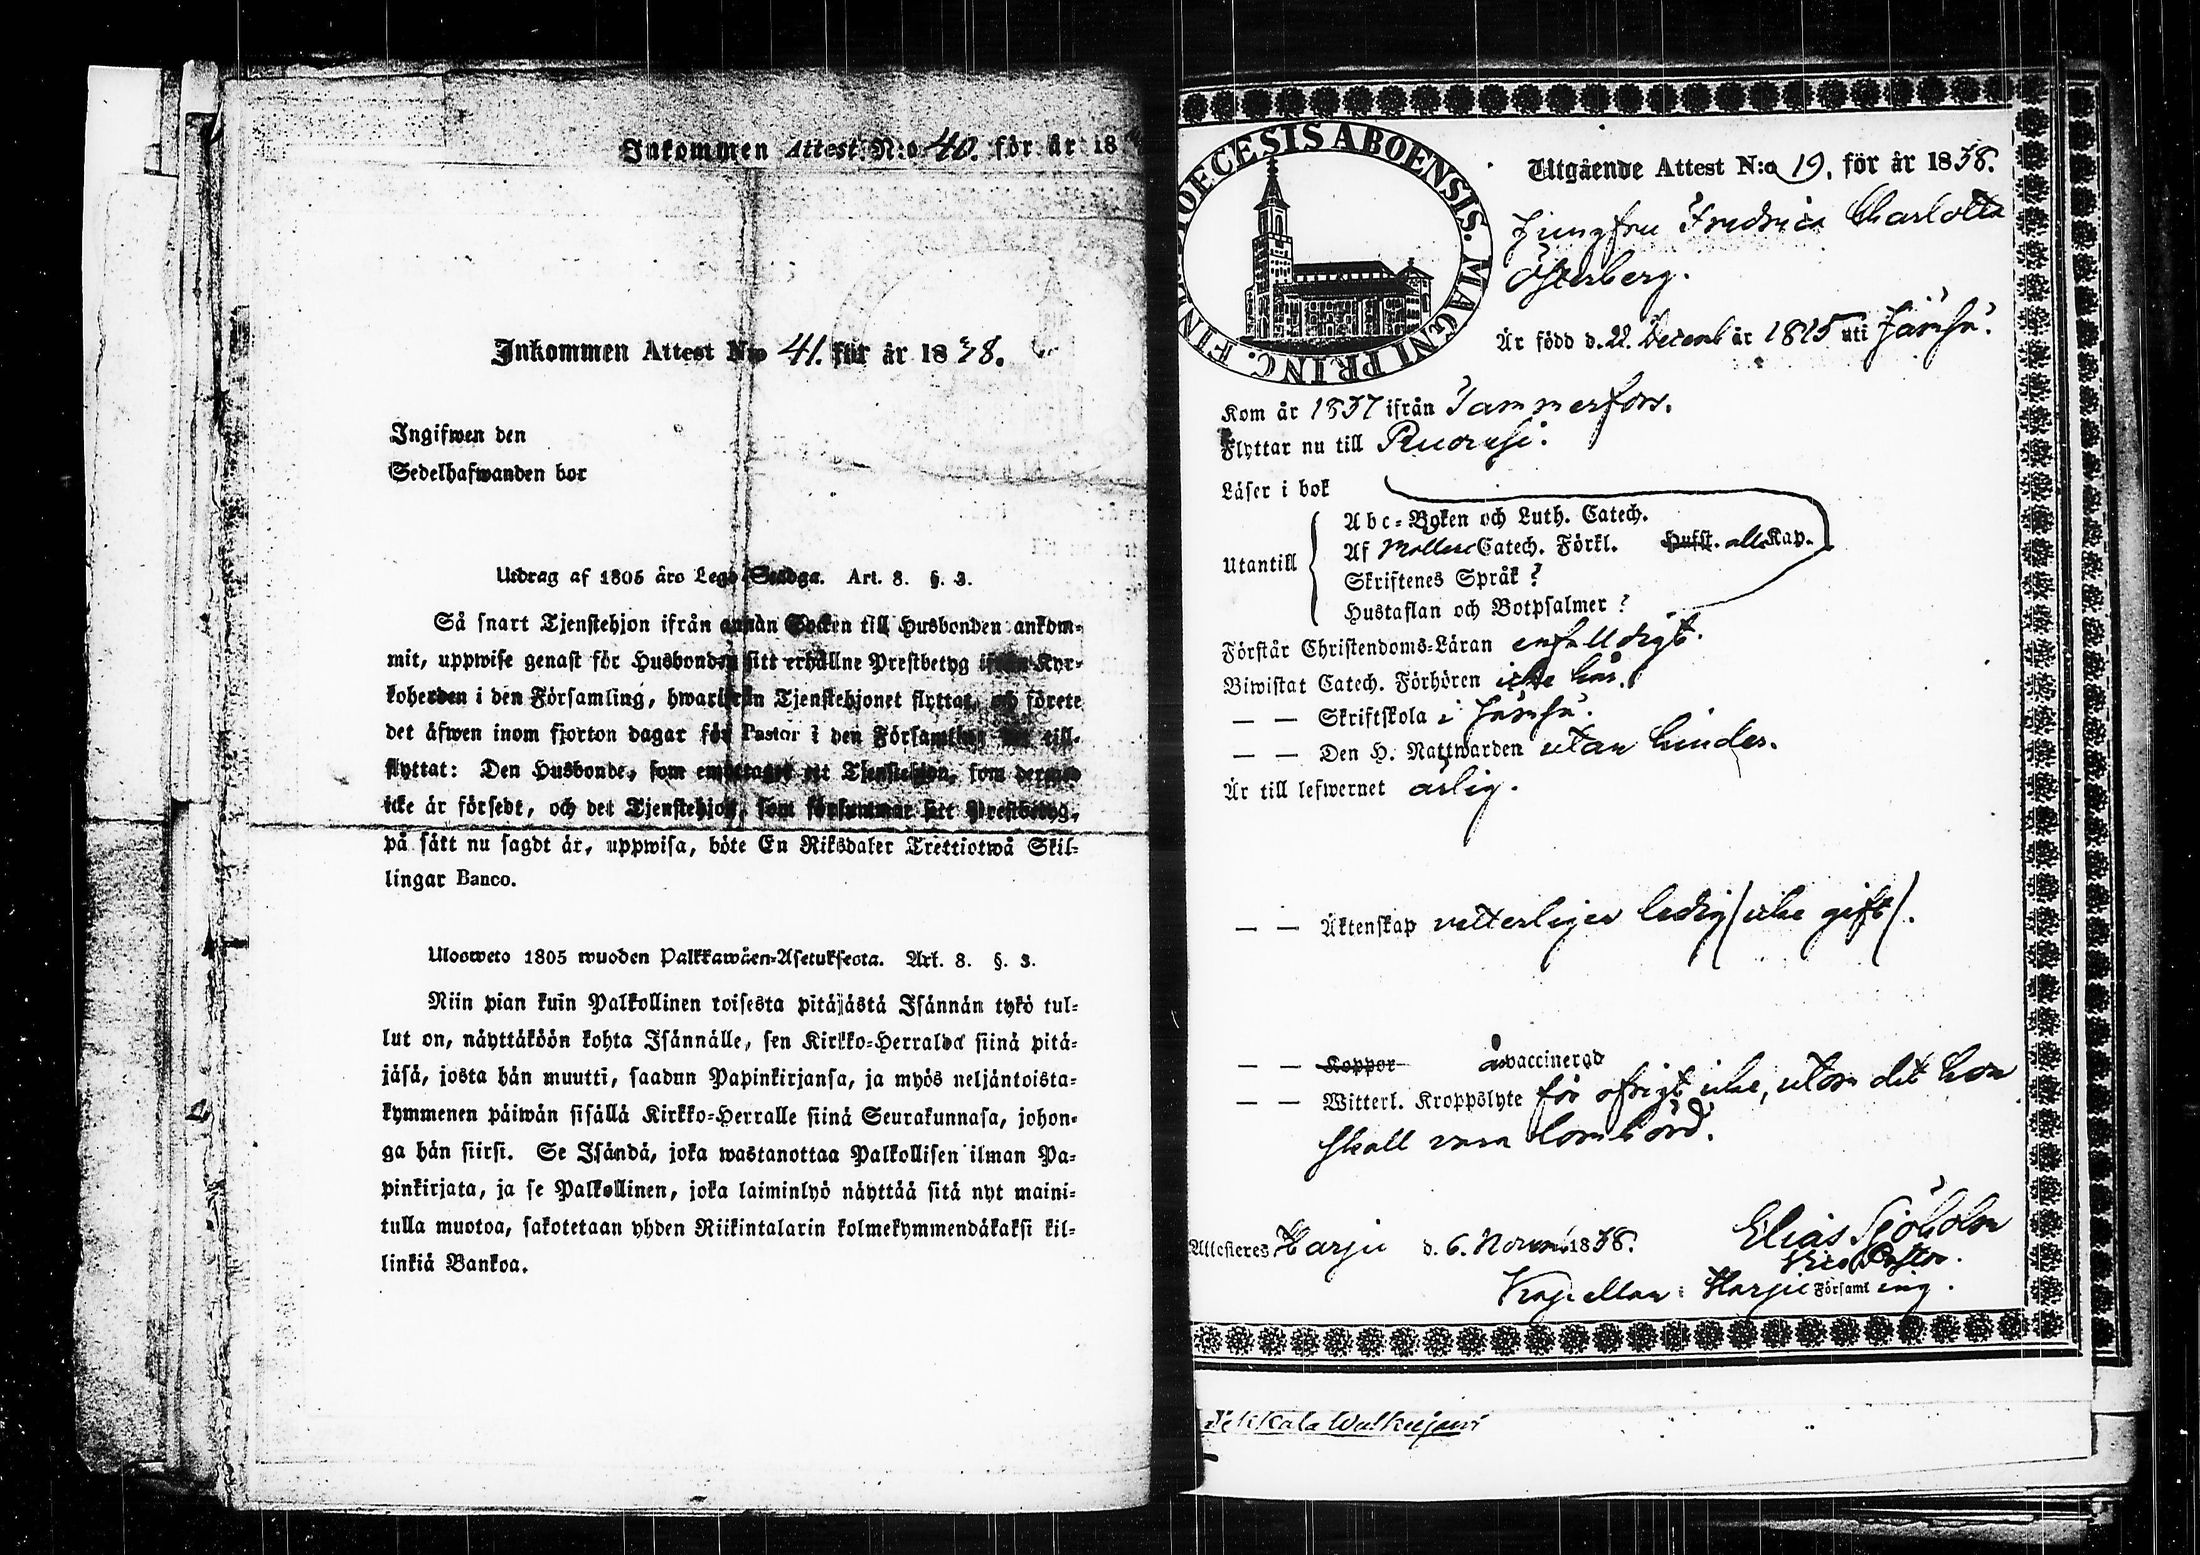 Inkommen Attest N:o 40. för år 18
Inkommen Attest N:o 41. för år 1838.
Ingifwen den
Sedelhafwanden bor
Utdrag af 1805 års Lego-Stadga. Art. 8. §. 3.
Så snart Tjenstehjon ifrån annan Socken till Husbonden ankom-
mit, uppwise genast för Husbonden sitt erhållne Prestbetyg ifrån Kyr-
koherden i den Församling, hwarifrån Tjenstehjonet flyttat, och förete
det äfwen inom fjorton dagar för Pastor i den Församling dit till-
flyttat: Den Husbonde, som emottaget ett Tjenstehjon, som dermed
icke är försedt, och det Tjenstehjon, som försummar sitt Prestbetyg,
på sätt nu sagdt är, uppwisa, böte En Riksdaler Trettiotwå Skil-
lingar Banco.
Ulosweto 1805 wuoden Palkkawäen-Asetuksesta. Art. 8. §. 3.
Niin pian kuin Palkollinen toisesta pitäjästä Isännän tykö tul-
lut on, näyttäköön kohta Isännälle, sen Kirkko-Herralda siinä pitä-
jäsä, josta hän muutti, saadun Papinkirjansa, ja myös neljäntoista-
kymmenen päiwän sisällä Kirkko-Herralle siinä Seurakunnasa, johon-
ga hän siirsi. Se Isändä, joka wastanottaa Palkollisen ilman Pa-
pinkirjata, ja se Palkollinen, joka laiminlyö näyttää sitä nyt maini-
tulla muotoa, sakotetaan yhden Riikintalarin kolmekymmendäkaksi kil-
linkiä Bankoa.
DIOECESIS ABOENSIS. MAGNI PRINC. FINL.
Utgående Attest N:o 19. för år 1838.
Jungfru Fredrica Charlotta
Österberg.
Är född d. 22. Decemb år 1815 uti Jämsä.
Kom år 1837 ifrån Tammerfors.
Flyttar nu till Ruovesi.
Läser i bok
Utantill
Abc-Boken och Luth. Catech.
Af Möllers Catech. Förkl. Hufst. alla Kap.
Skriftenes Språk?
Hustaflan och Botpsalmer?
Förstår Christendoms-Läran enfalldigt.
Biwistat Catech. Förhören icke här.
— — Skriftskola i Jämsä.
— — Den H. Nattwarden utan hinder.
Är till lefwernet ärlig.
— — Äktenskap vetterligen ledig (icke gift).
— — Koppor vaccinerad
— — Witterl. Kroppslyte för öfrigt icke, utom det hon
skall vara lomhörd.
Attesteres Harju d. 6. Novemb 1838. Elias Sjöholm
Vice Pastor.
Kapellan i Harju Församling.
Pekkala Walkeajärvi